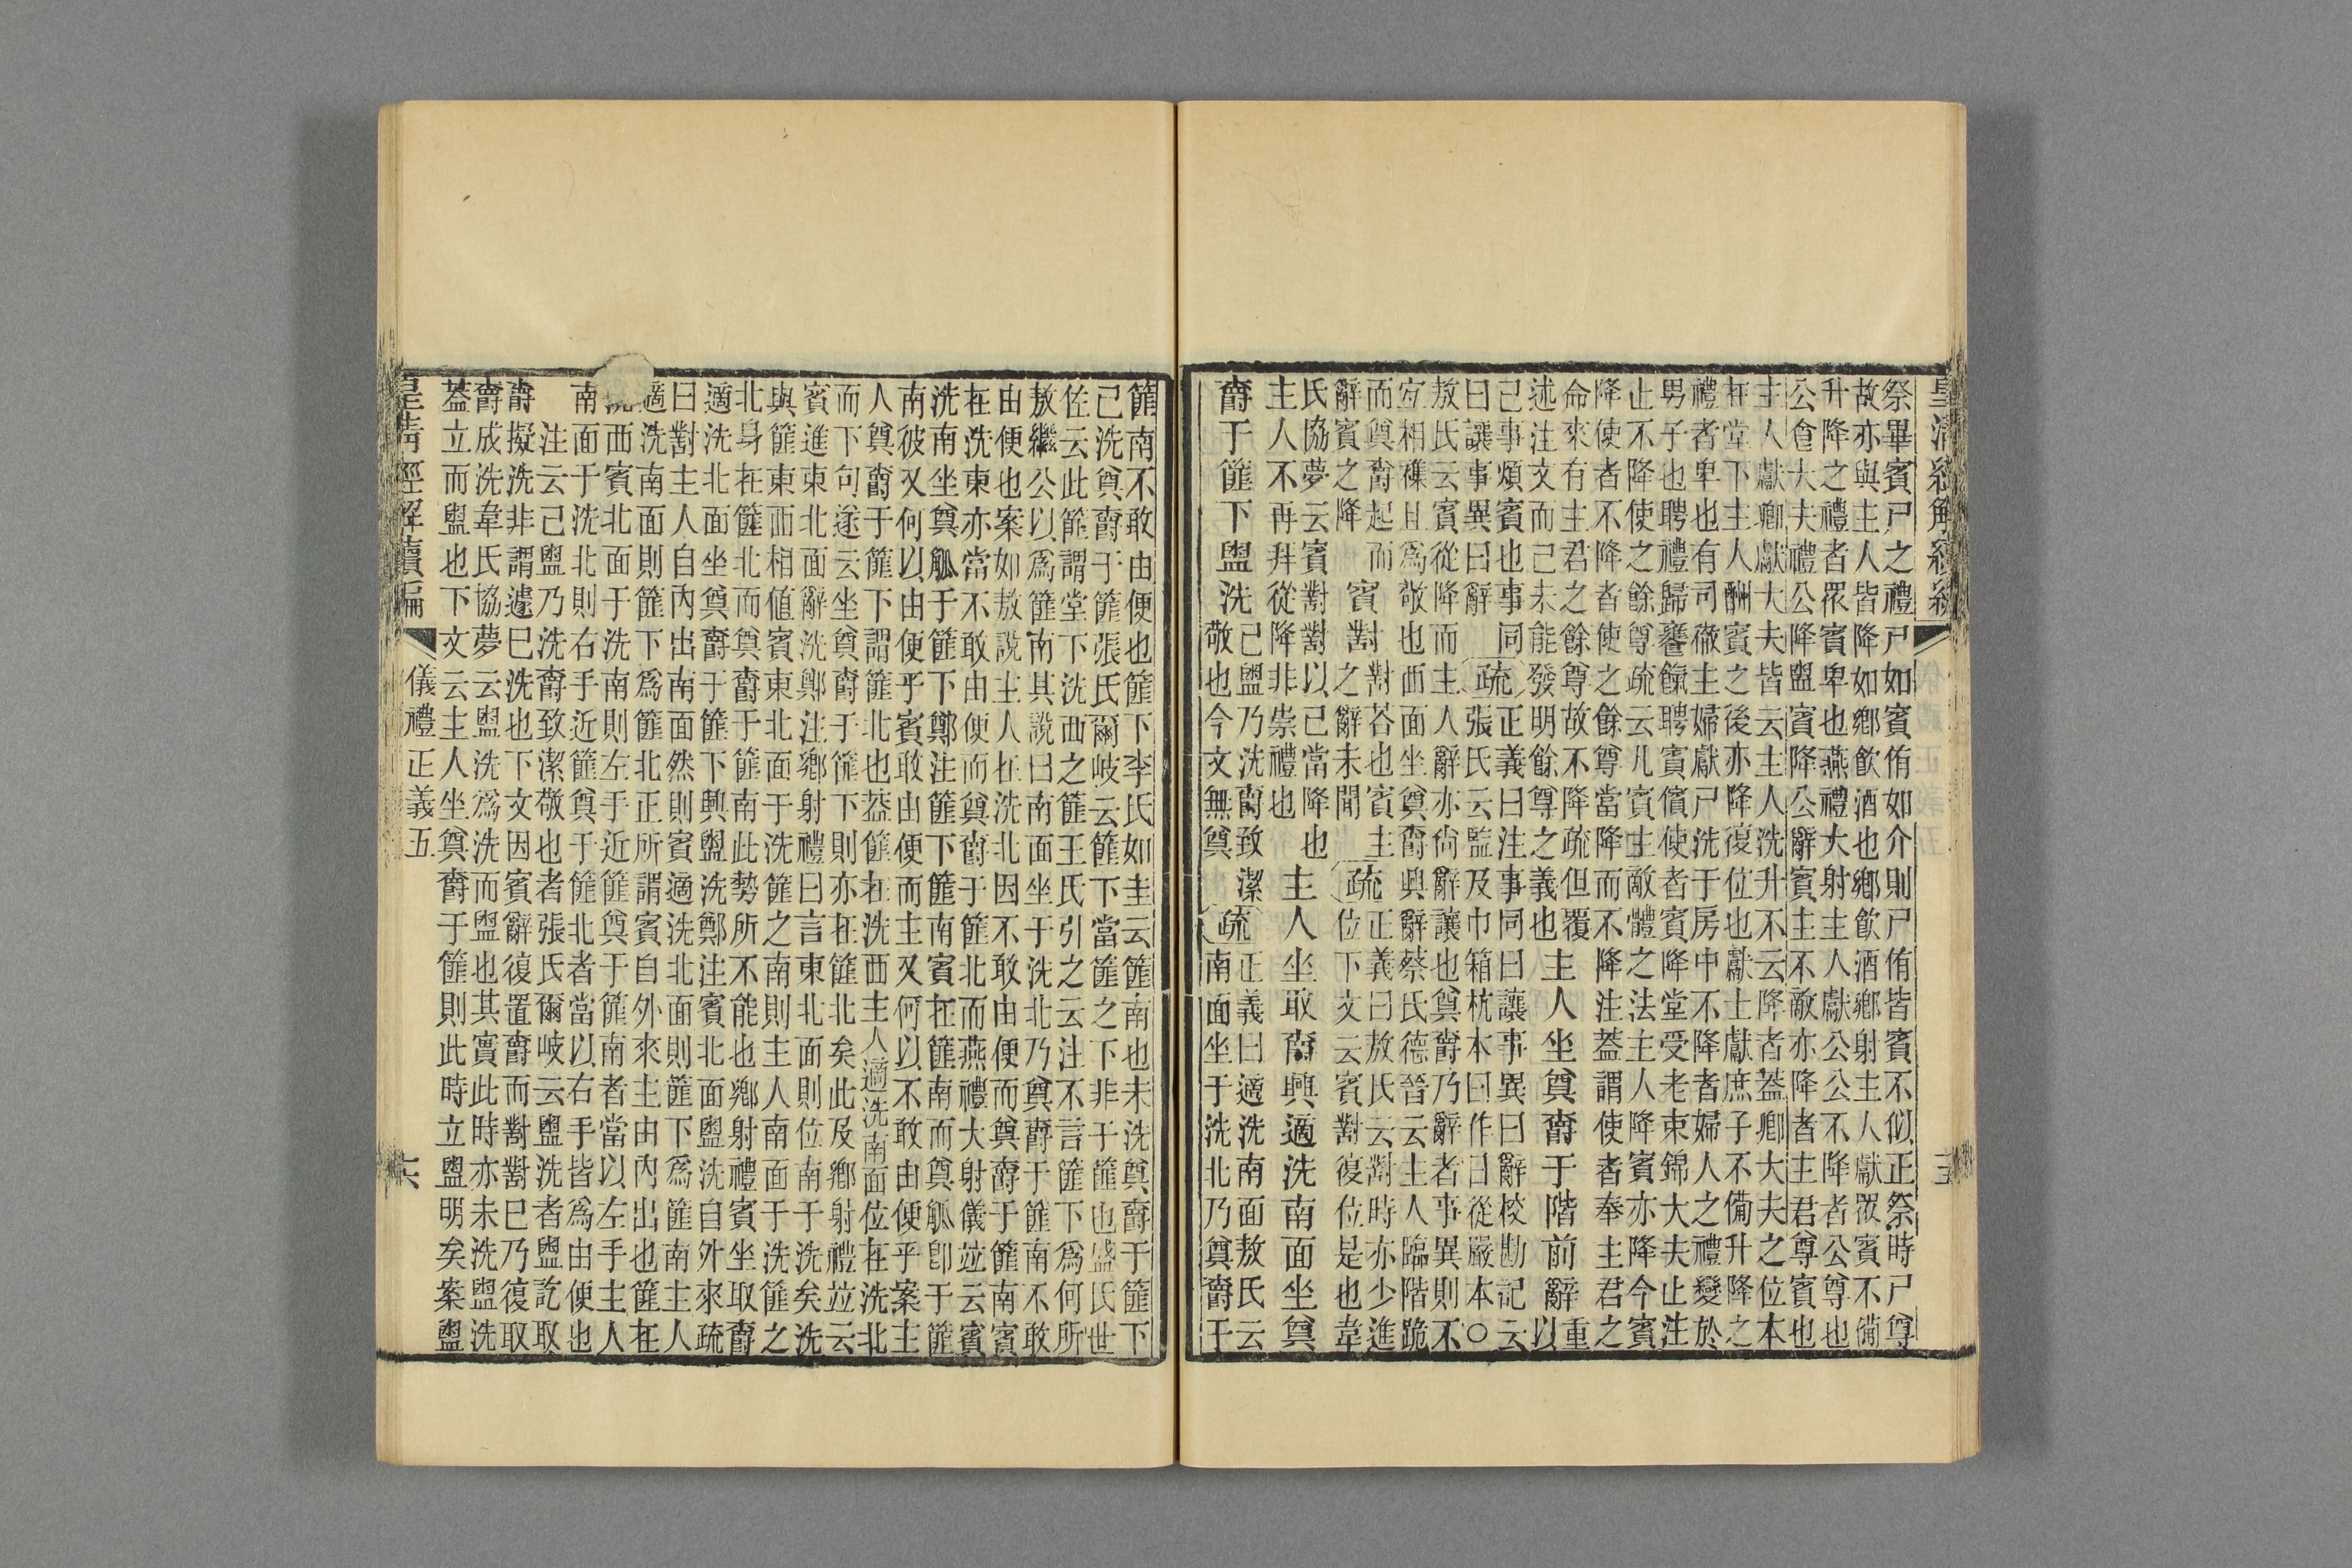 皇清經解續編
祭畢賓尸之禮尸如賓侑如介則尸侑皆賓不似正祭時尸尊
故亦與主人皆降如鄉飲酒也鄉飲酒鄉射主人獻眾賓不備
升降之禮者眾賓卑也燕禮大射主人獻公公不降者公尊也
公食大夫禮公降盥賓降公辭賓主不敵亦降者主君尊賓也
主人獻卿獻大夫皆云主人洗升不云降者蓋卿大夫之位本
在堂下主人酬賓之後亦降復位也獻士獻庶子不備升降之
禮者卑也有司徹主婦獻尸洗于房中不降者婦人之禮變於
男子也聘禮歸饔餼聘賓儐使者賓降堂受老束錦大夫止注
止不降使之餘尊疏云凡賓主敵體之法主人降賓亦降今賓
降使者不降者使之餘尊當降而不降注蓋謂使者奉主君之
命來有主君之餘尊故不降疏但覆
述注文而已未能發明餘尊之義也
主人坐奠爵于階前辭
重以
己事煩賓也事同
曰讓事異曰辭
疏
正義曰注事同曰讓事異曰辭校勘記云
張氏云監及巾箱杭本曰作日從嚴本○
敖氏云賓從降而主人辭亦尚辭讓也奠爵乃辭者事異則不
宜相襍且為敬也西面坐奠爵興辭蔡氏德晉云主人臨階跪
而奠爵起而
辭賓之降
賓對
對荅也賓主
之辭未聞
疏
正義曰敖氏云對時亦少進
位下文云賓對復位是也韋
氏協夢云賓對對以已當降也
主人不再拜從降非崇禮也
主人坐取爵興適洗南面坐奠
爵于篚下盥洗
已盥乃洗爵致潔
敬也今文無奠
疏
正義曰適洗南面敖氏云
南面坐于洗北乃奠爵于
篚南不敢由便也篚下李氏如圭云篚南也未洗奠爵于篚下
已洗奠爵于篚張氏爾岐云篚下當篚之下非于篚也盛氏世
佐云此篚謂堂下洗西之篚王氏引之云注不言篚下為何所
敖繼公以為篚南其說曰南面坐于洗北乃奠爵于篚南不敢
由便也案如敖說主人在洗北因不敢由便而奠爵于篚南賓
在洗東亦當不敢由便而奠爵于篚北而燕禮大射儀竝云賓
洗南坐奠觚于篚下鄭注篚下篚南賓在篚南而奠觚卽于篚
南彼又何以由便乎賓敢由便而主又何以不敢由便乎案主
人奠爵于篚下謂篚北也蓋篚在洗西主人適洗南面位在洗北
而下句遂云坐奠爵于篚下則亦在篚北矣此及鄉射禮竝云
賓進東北面辭洗鄭注鄉射禮曰言東北面則位南于洗矣洗
與篚東西相值賓東北面于洗篚之南則主人南面于洗篚之
北身在篚北而奠爵于篚南此勢所不能也鄉射禮賓坐取爵
適洗北面坐奠爵于篚下興盥洗鄭注賓北面盥洗自外來疏
曰對主人自內出南面然則賓適洗北面則篚下為篚南主人
適洗南面則篚下為篚北正所謂賓自外來主由內出也篚在
洗西賓北面于洗南則左手近篚奠于篚南者當以左手主人
南面于洗北則右手近篚奠于篚北者當以右手皆為由便也
注云已盥乃洗爵致潔敬也者張氏爾岐云盥洗者盥訖取
爵擬洗非謂遽已洗也下文因賓辭復置爵而對對已乃復取
爵成洗韋氏協夢云盥洗為洗而盥也其實此時亦未洗盥洗
蓋立而盥也下文云主人坐奠爵于篚則此時立盥明矣案盥
皇清經解續編
儀禮正義五
六